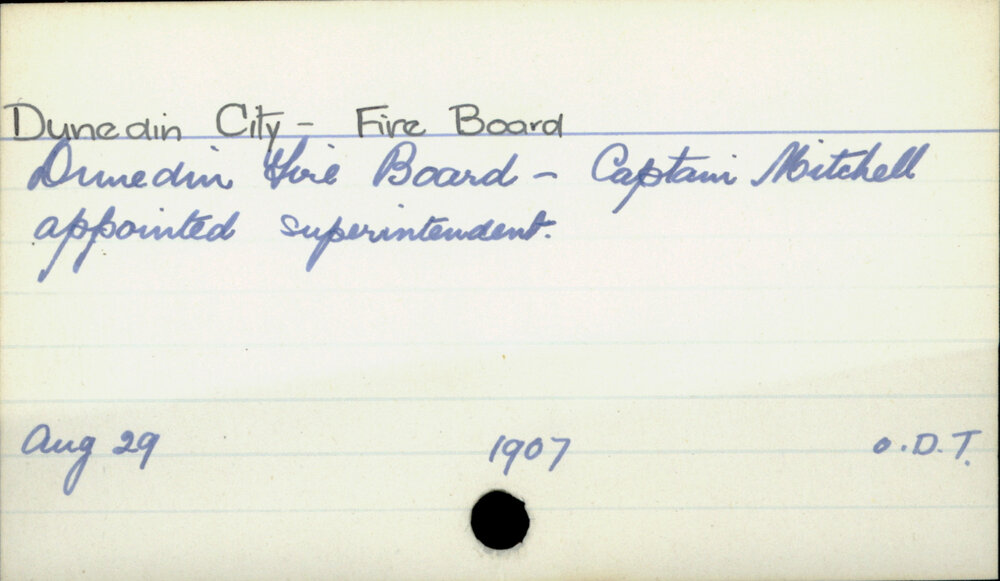 Dunedin City - Fire Board
Dunedin Fire Board - Captain Mitchell
appointed superintendent.
Aug 29 1907 O.D.T.